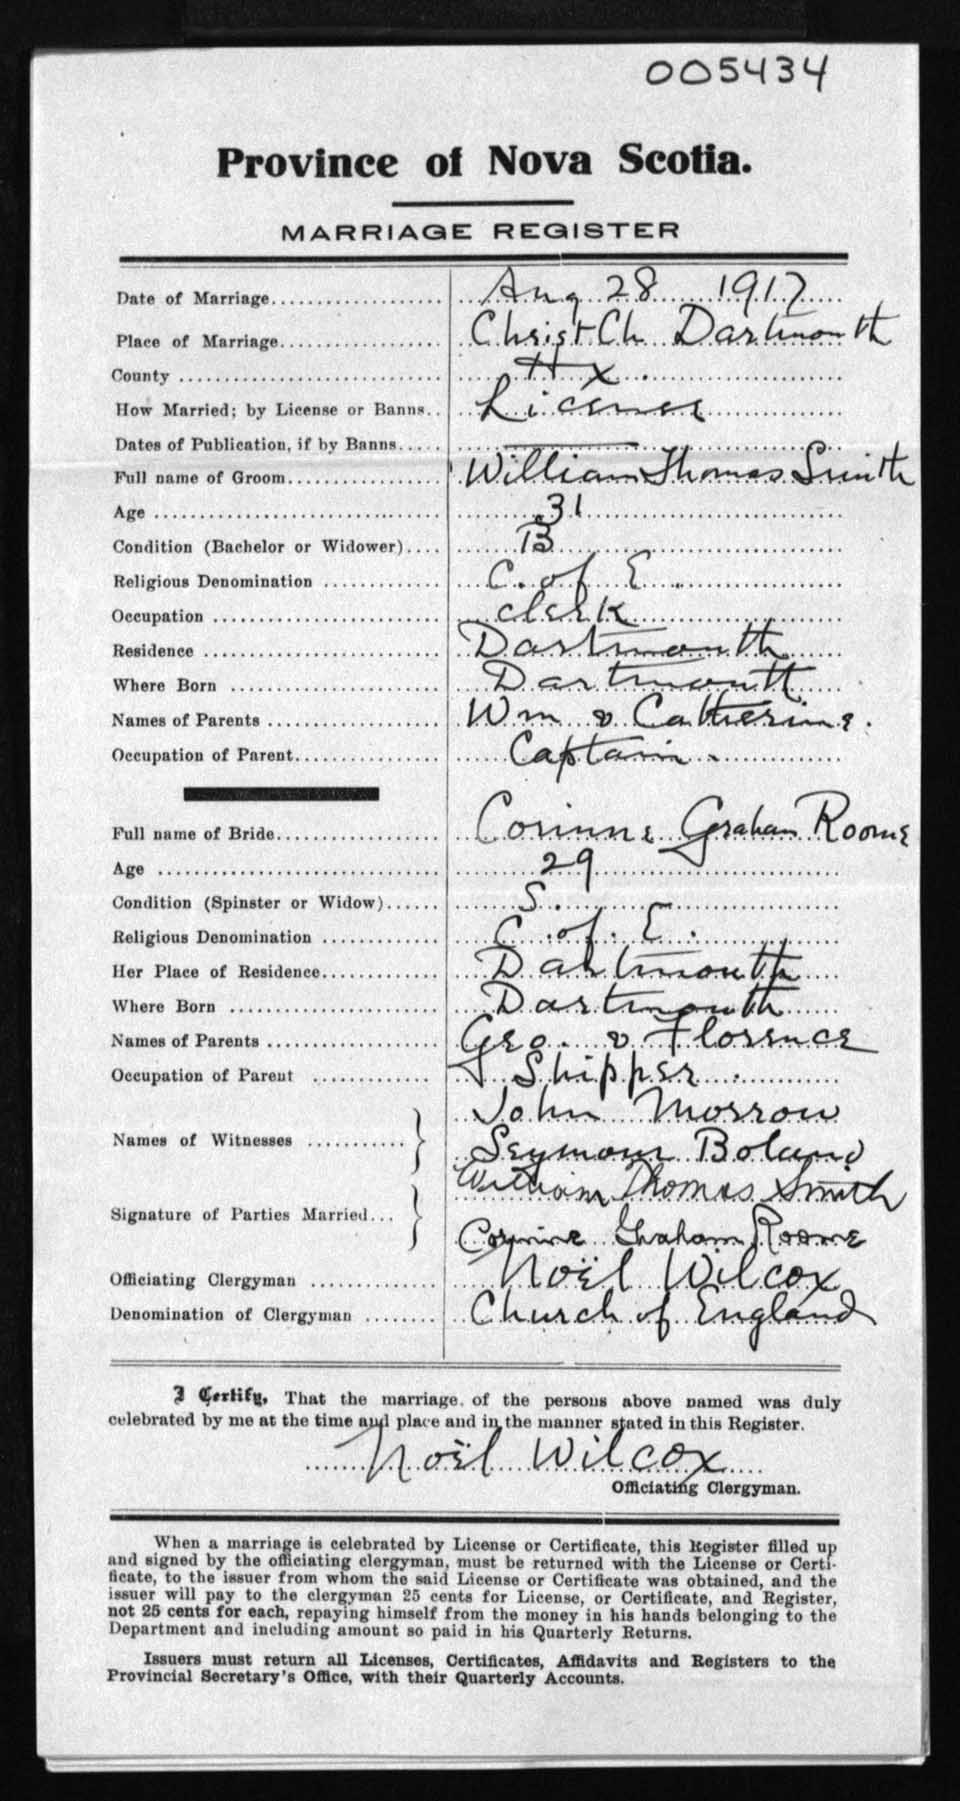 005434
Province of Nova Scotia.
MARRIAGE REGISTER
Date of Marriage Aug 28 1917
Place of Marriage Christ Ch Dartmouth
County Hx.
How Married; by License or Banns License
Dates of Publication, if by Banns
Full name of Groom William Thomas Smith
Age 31
Condition (Bachelor or Widower) B
Religious Denomination C. of E.
Occupation clerk
Residence Dartmouth
Where Born Dartmouth
Names of Parents Wm & Catherine.
Occupation of Parent Captain.
Full name of Bride Corinne Graham Roome
Age 29
Condition (Spinster or Widow) S.
Religious Denomination C. of E.
Her Place of Residence Dartmouth
Where Born Dartmouth
Names of Parents Geo. & Florence
Occupation of Parent Shipper.
Names of Witnesses John Morrow
Seymour Boland
Signature of Parties Married William Thomas Smith
Corinne Graham Roome
Officiating Clergyman Noël Wilcox
Denomination of Clergyman Church of England
I Certify, That the marriage of the persons above named was duly
celebrated by me at the time and place and in the manner stated in this Register.
Noël Wilcox
Officiating Clergyman.
When a marriage is celebrated by License or Certificate, this Register filled up
and signed by the officiating clergyman, must be returned with the License or Certi-
ficate, to the issuer from whom the said License or Certificate was obtained, and the
issuer will pay to the clergyman 25 cents for License, or Certificate, and Register,
not 25 cents for each, repaying himself from the money in his hands belonging to the
Department and including amount so paid in his Quarterly Returns.
Issuers must return all Licenses, Certificates, Affidavits and Registers to the
Provincial Secretary's Office, with their Quarterly Accounts.